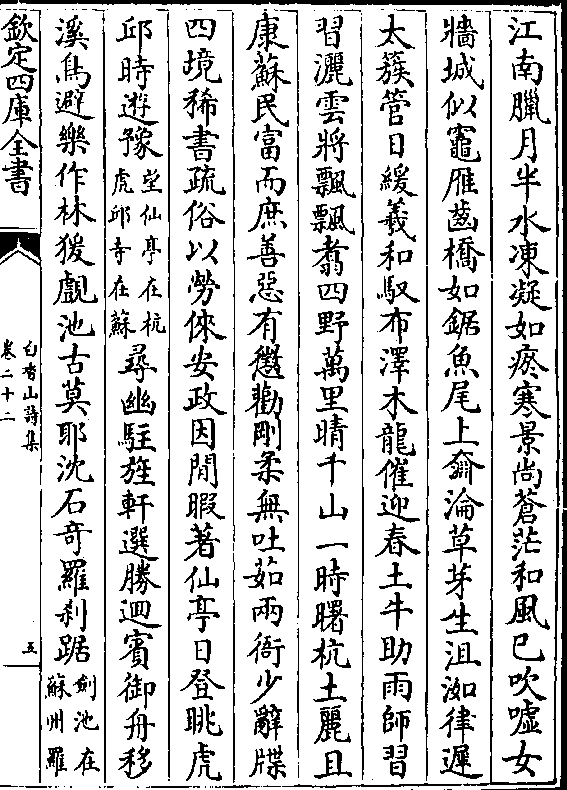 江南臘月半水凍凝如瘀寒景尚蒼茫和風已吹噓女
牆城似竈雁齒橋如鋸魚尾上奫淪草芽生沮洳律遲
太簇管日緩羲和馭布澤木龍催迎春土牛助雨師習
習灑雲將飄飄翥四野萬里晴千山一時曙杭土麗且
康蘇民富而庶善惡有懲勸剛柔無吐茹兩衙少辭牒
四境稀書疏俗以勞倈安政因閒暇著仙亭日登眺虎
邱時遊豫望仙亭在杭虎邱寺在蘇尋幽駐旌軒選勝迴賓御舟移
溪鳥避樂作林猨覰池古莫耶沈石奇羅刹踞劍池在蘇州羅
欽定四庫全書
白香山詩集
卷二十二
五